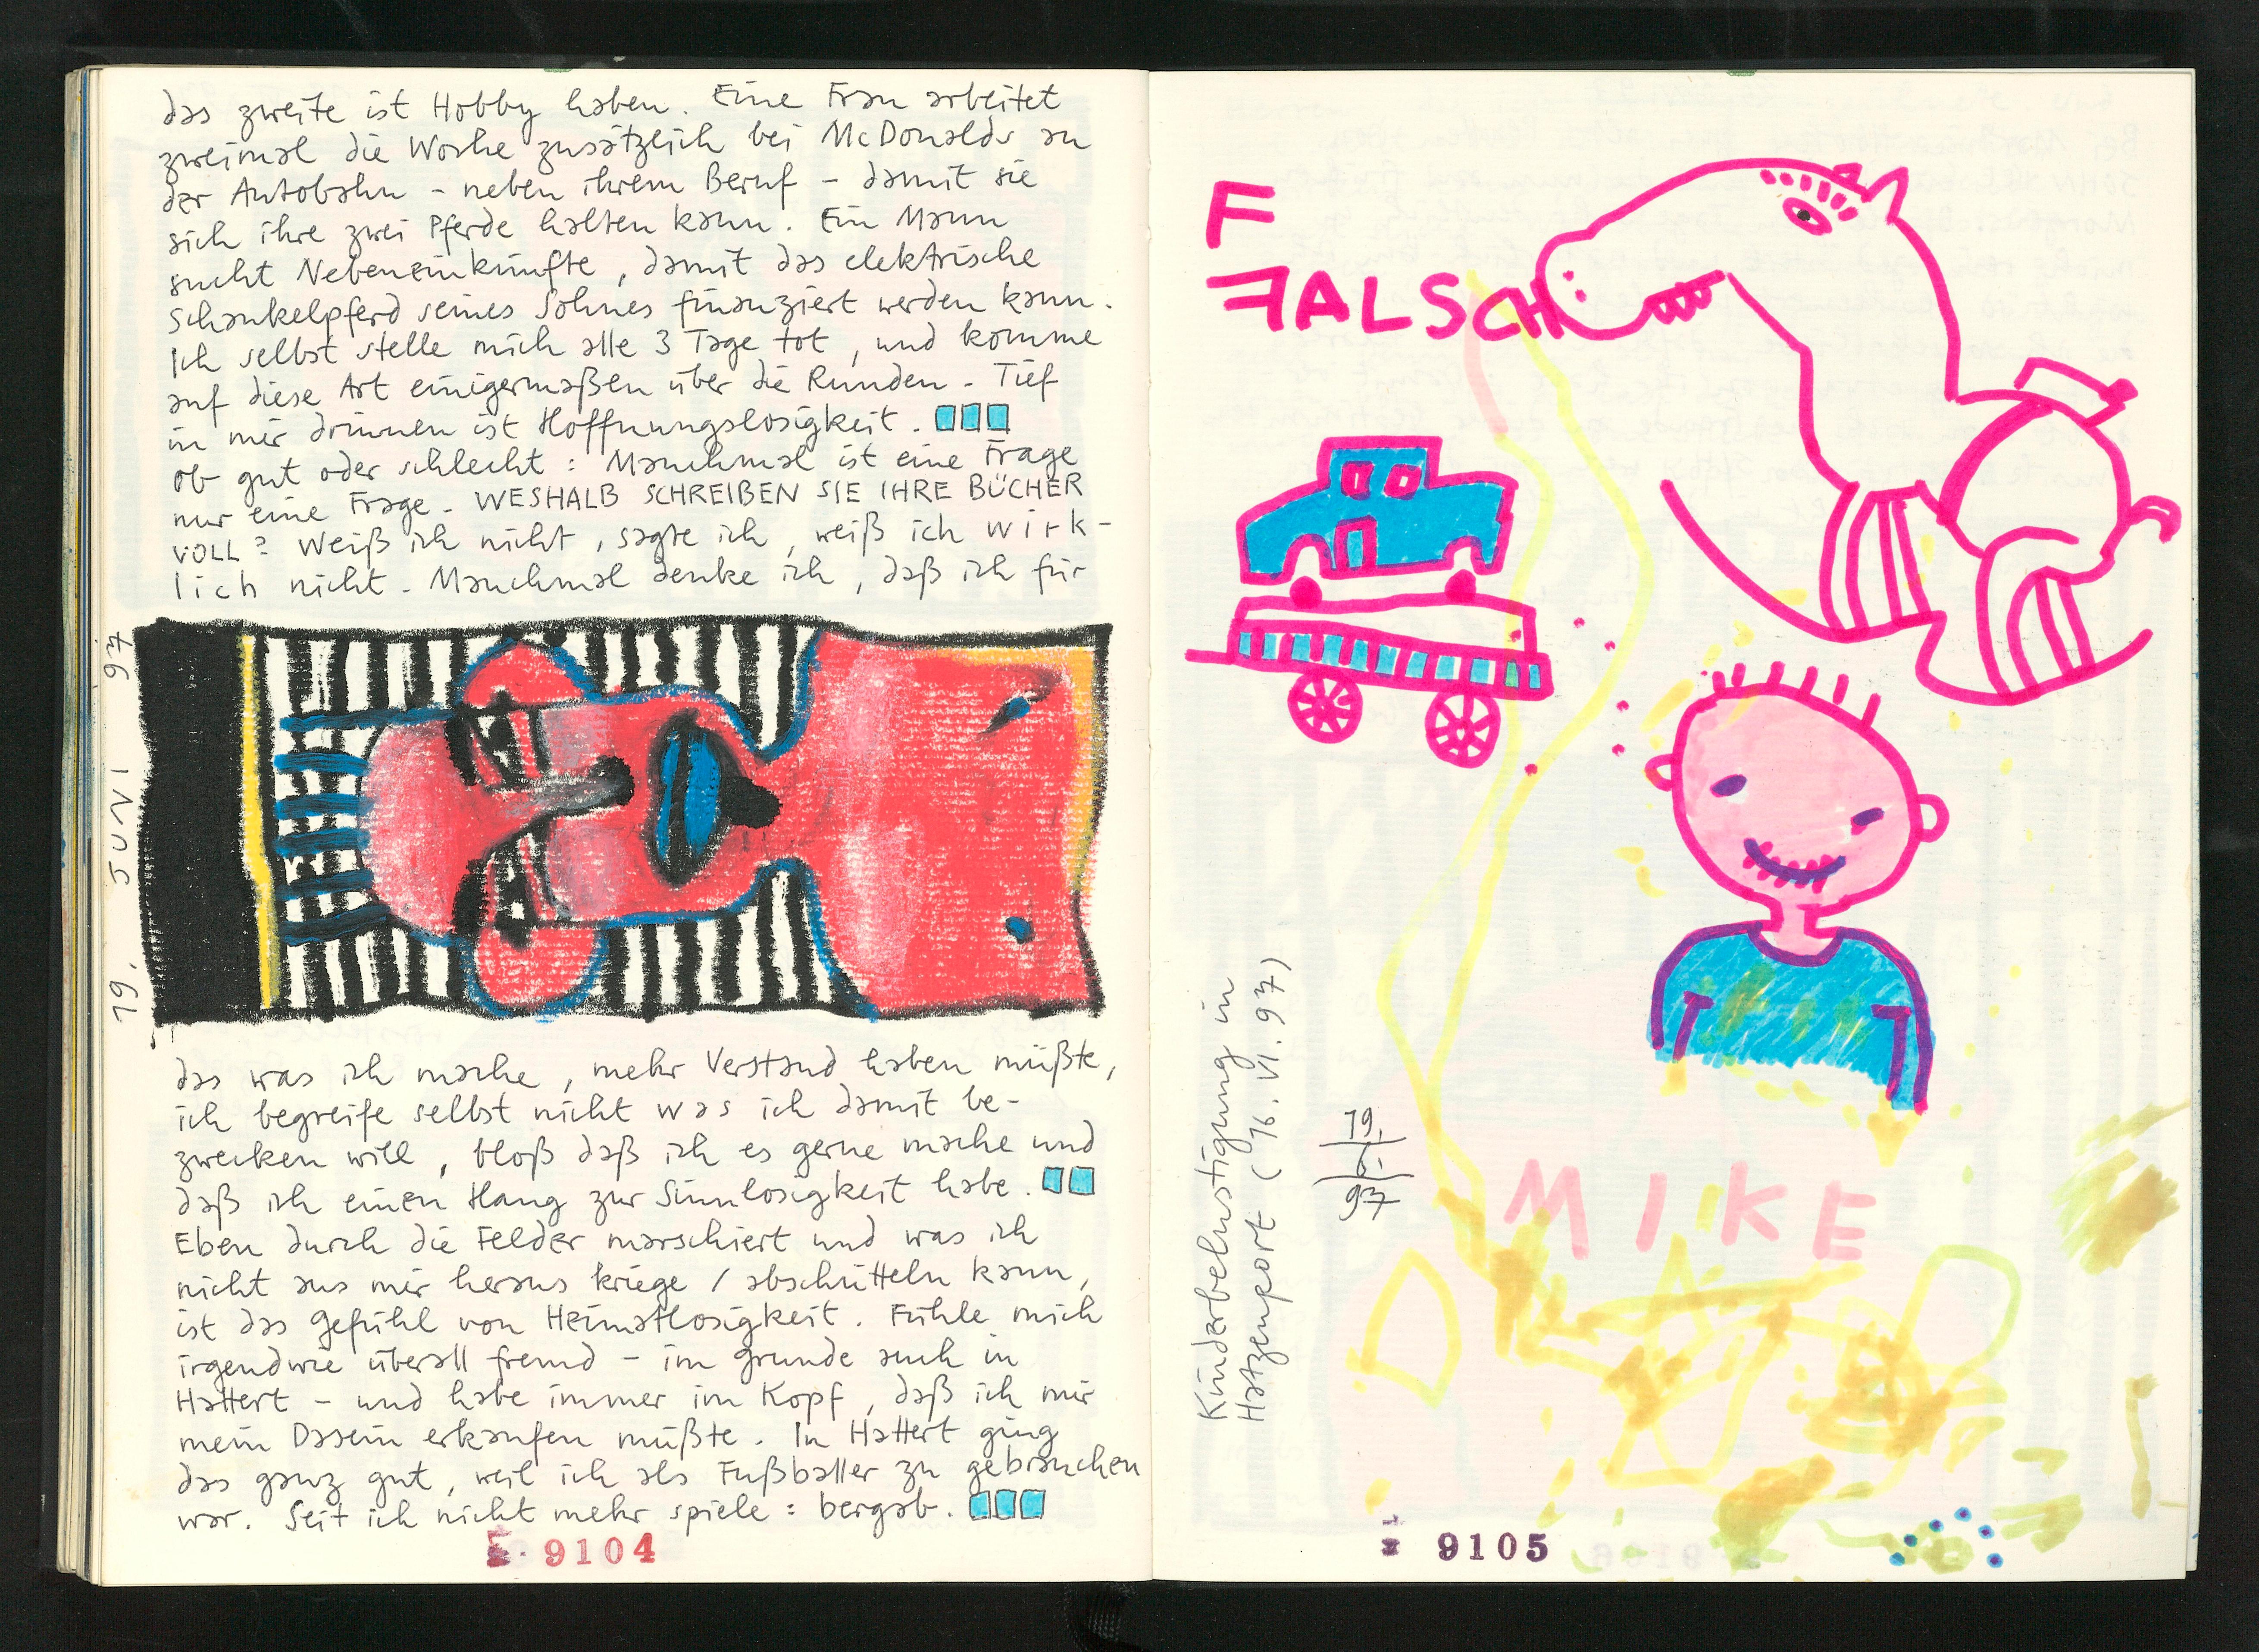 das zweite ist Hobby haben. Eine Frau arbeitet
zweimal die Woche zusätzlich bei McDonalds an
der Autobahn - neben ihrem Beruf - damit sie
sich ihre zwei Pferde halten kann. Ein Mann
sucht Nebeneinkünfte, damit das elektrische
Schaukelpferd seines Sohnes finanziert werden kann.
Ich selbst stelle mich alle 3 Tage tot, und komme
auf diese Art einigermaßen über die Runden. Tief
in mir drinnen ist Hoffnungslosigkeit.
ob gut oder schlecht: Manchmal ist eine Frage
nur eine Frage. WESHALB SCHREIBEN SIE IHRE BÜCHER
VOLL? Weiß ich nicht, sagte ich, weiß ich wirk-
lich nicht. Manchmal denke ich, daß ich für
19. JUNI 97
das was ich mache, mehr Verstand haben müßte,
ich begreife selbst nicht was ich damit be-
zwecken will, bloß daß ich es gerne mache und
daß ich einen Hang zur Sinnlosigkeit habe.
Eben durch die Felder marschiert und was ich
nicht aus mir heraus kriege / abschütteln kann,
ist das Gefühl von Heimatlosigkeit. Fühle mich
irgendwie überall fremd - im Grunde auch in
Hattert - und habe immer im Kopf, daß ich mir
mein Dasein erkaufen müßte. In Hattert ging
das ganz gut, weil ich als Fußballer zu gebrauchen
war. Seit ich nicht mehr spiele: bergab.
9104
F
FALSCH
Kinderbelustigung in
Hatzenport (16. VI. 97)
19.
6.
97
MIKE
9105